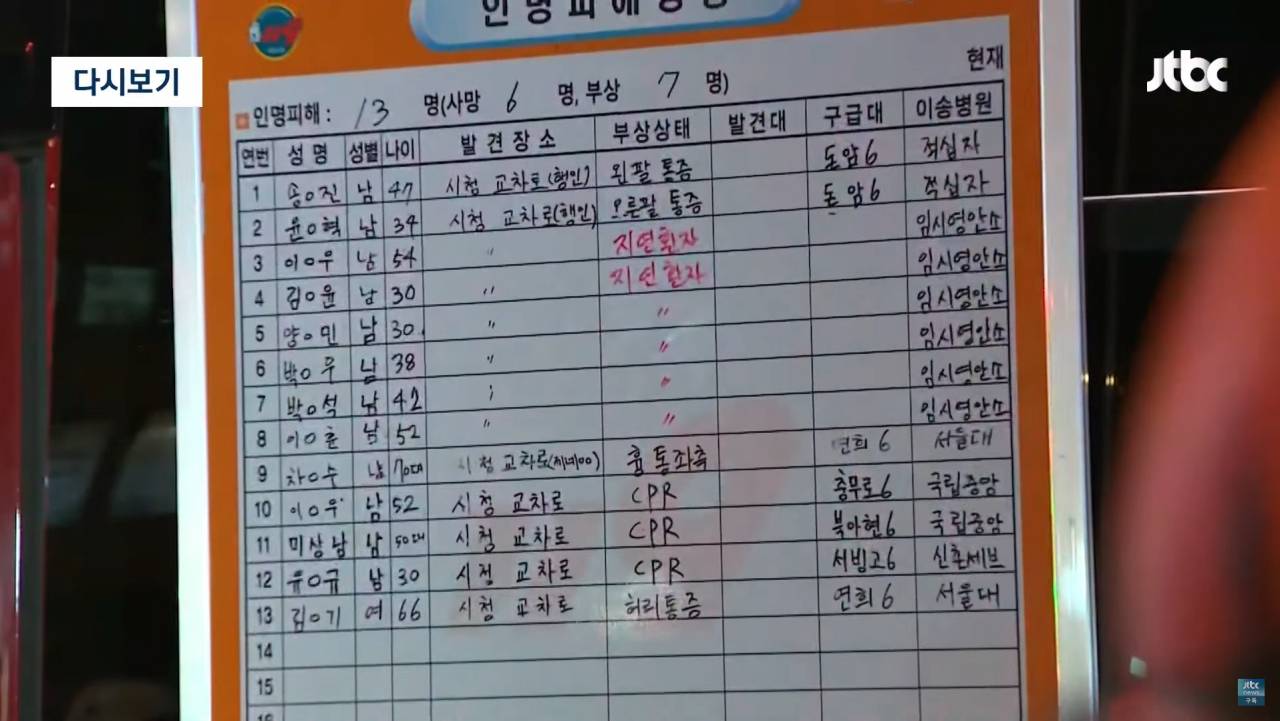 인명피해
다시보기
jtbc
현재
인명피해 : 13 명(사망 6 명, 부상 7 명)
연번 성명 성별 나이 발견장소 부상상태 발견대 구급대 이송병원
1 송ㅇ진 남 47 시청 교차로(행인) 왼팔 통증 돈암6 적십자
2 윤ㅇ혁 남 34 시청 교차로(행인) 오른팔 통증 돈암6 적십자
3 이ㅇ우 남 54 〃 지연환자 임시영안소
4 김ㅇ윤 남 30 〃 지연환자 임시영안소
5 양ㅇ민 남 30 〃 〃 임시영안소
6 박ㅇ우 남 38 〃 〃 임시영안소
7 박ㅇ석 남 42 〃 임시영안소
8 이ㅇ훈 남 52 〃 〃 임시영안소
9 차ㅇ수 남 70대 시청 교차로 흉통좌측 연희6 서울대
10 이ㅇ우 남 52 시청 교차로 CPR 충무로6 국립중앙
11 미상남 남 50대 시청 교차로 CPR 북아현6 국립중앙
12 유ㅇ규 남 30 시청 교차로 CPR 서빙고6 신촌세브
13 김ㅇ기 여 66 시청 교차로 허리통증 연희6 서울대
14
15
jtbc
news
구독